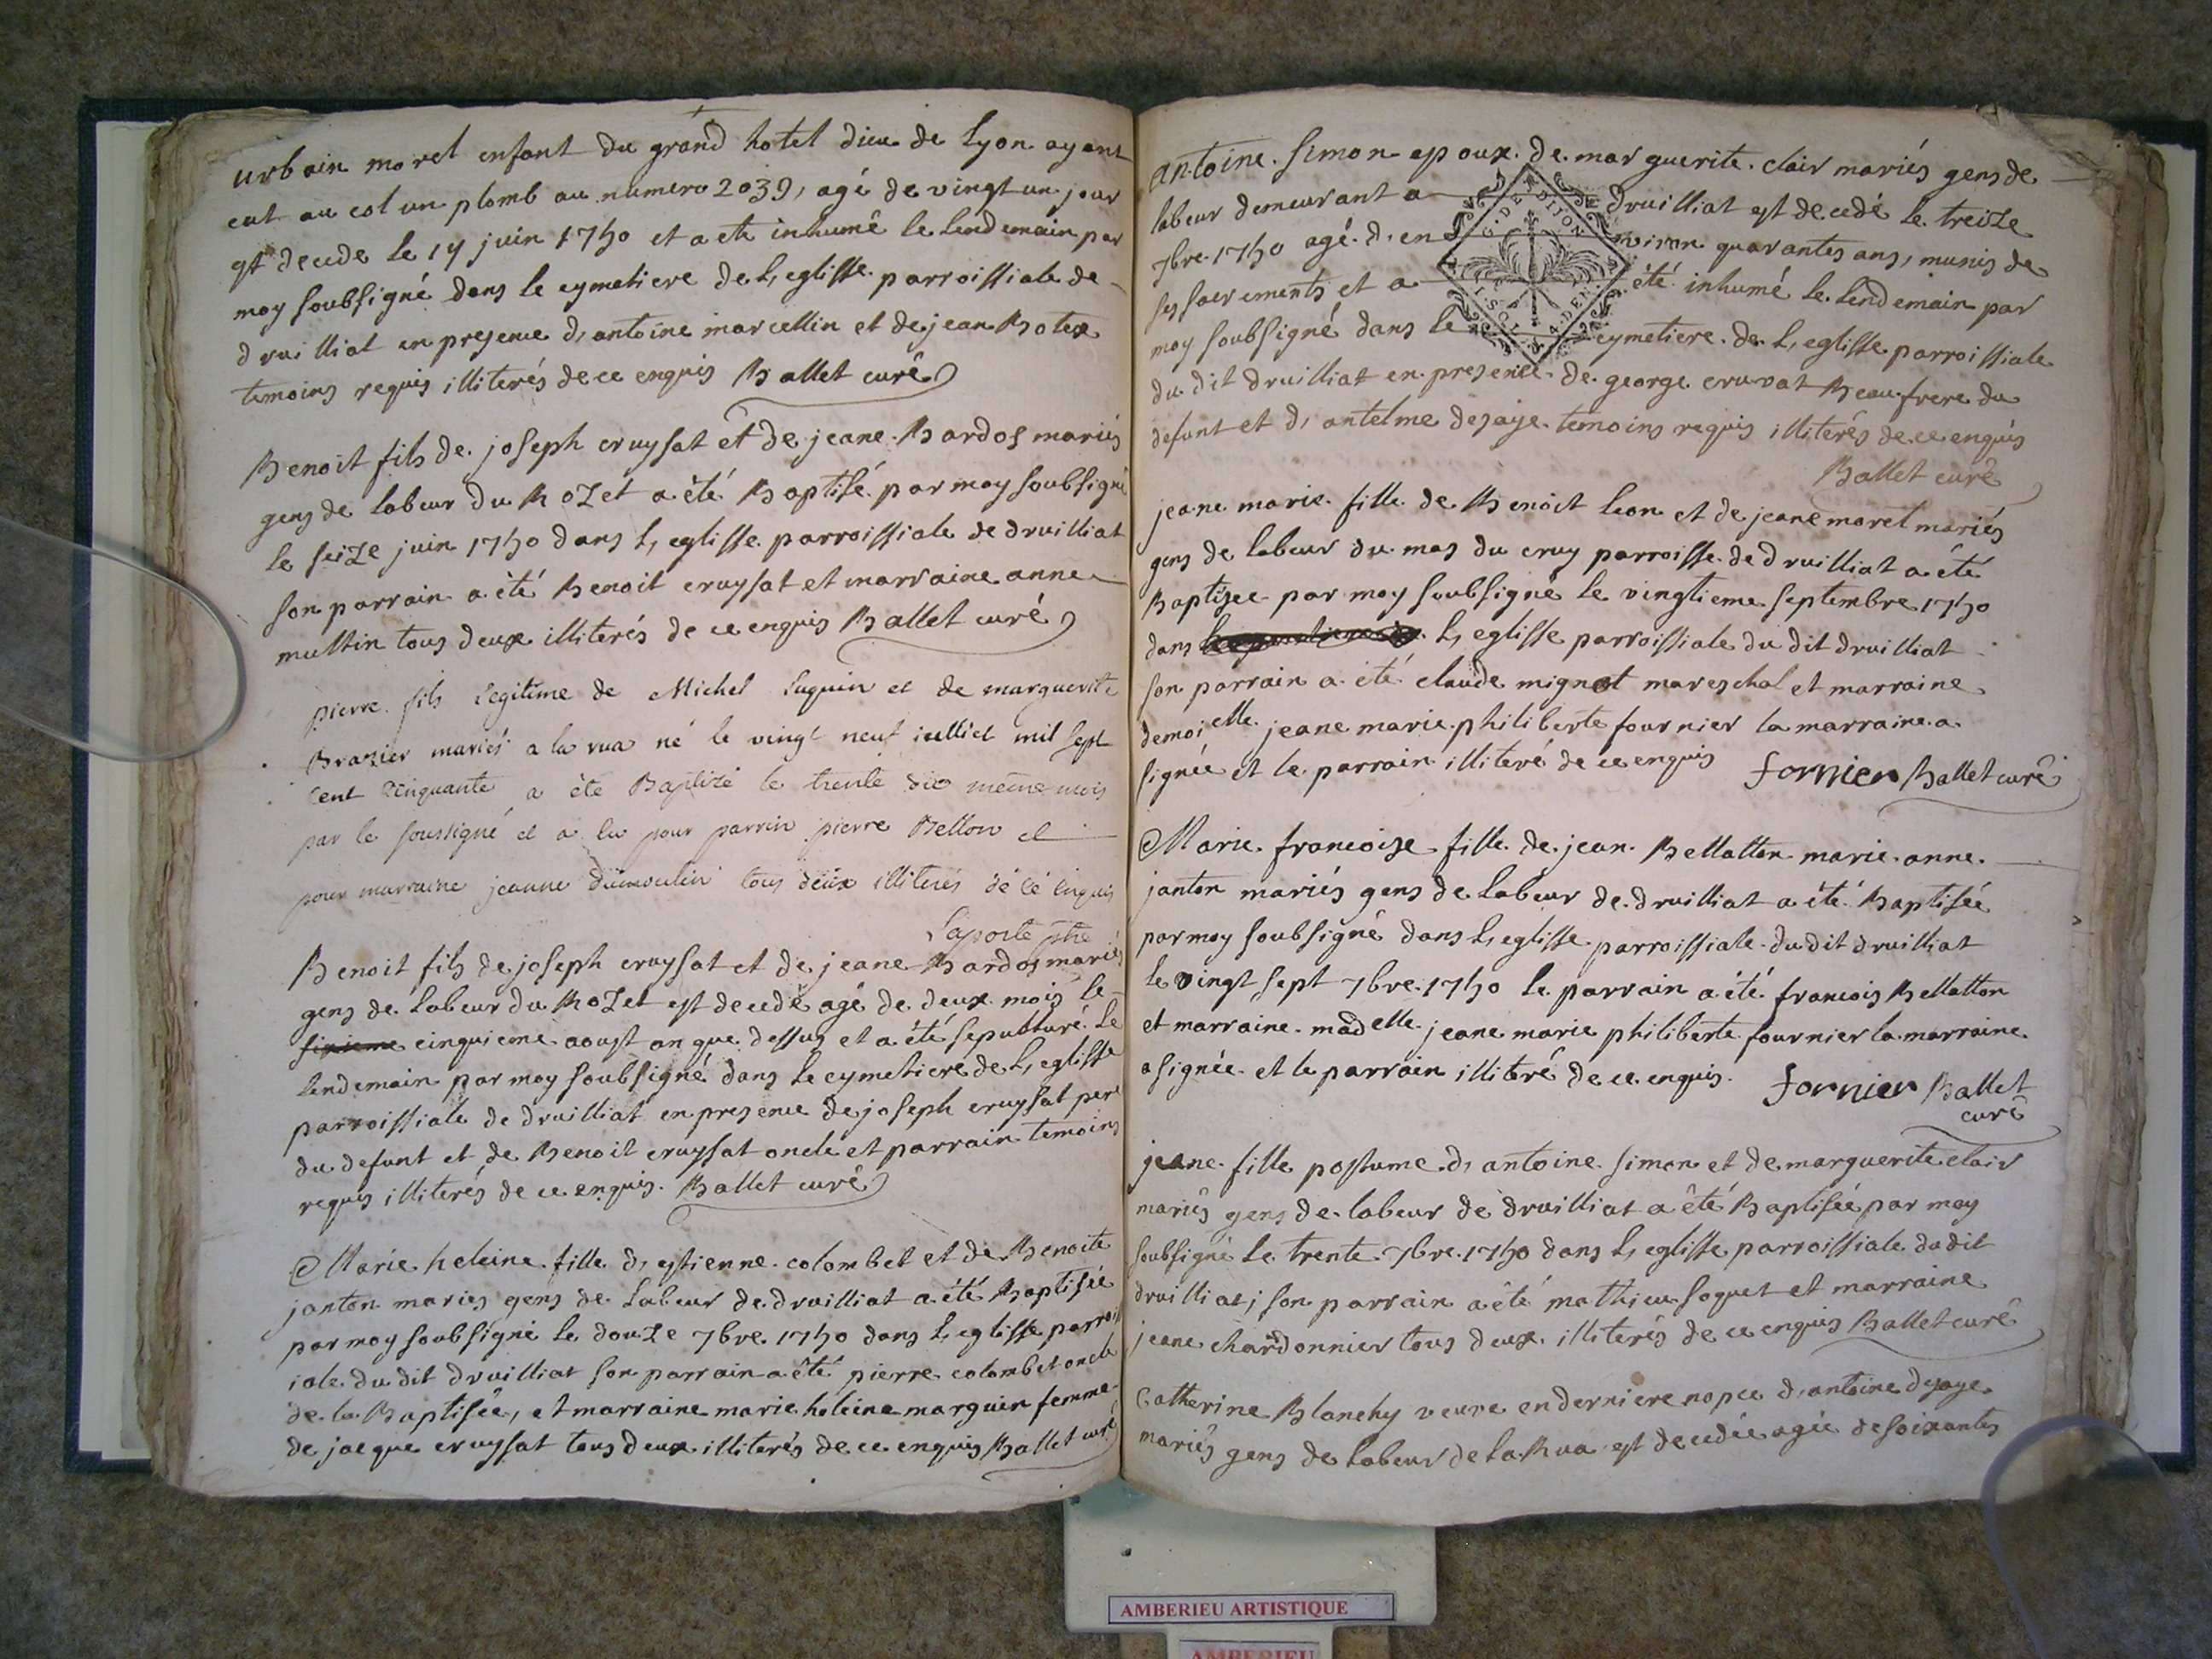 urbain morel enfant du grand hotel dieu de Lyon ayant
eut au col un plomb au numero 2039, agé de vingt un jour
est decede le 14 juin 1750 et a ete inhumé le lendemain par
moy soubsigné dans le cymetiere de L, eglisse parroissiale de
druilliat en presence d, antoine marcellin et de jean Botex
temoins requis illiterés de ce enquis Ballet curé
Benoit fils de joseph cruysat et de jeane Bardos mariés
gens de labeur du Rozet a été Baptisé par moy soubsigné
le seize juin 1750 dans L, eglisse parroissiale de druilliat
son parrain a été Benoit cruysat et marraine anne
multin tous deux illiterés de ce enquis Ballet curé
pierre fils Legitime de Michel Luquin et de marguerite
Brazier mariés a la rua né le vingt neuf iuilliet mil sept
cent cinquante a éte Baptizé le trente dio même mois
par le soussigné et a Eu pour parrin pierre Bellon et
pour marraine jeanne dumoulin tous deux illiterés dé cé enquis
Laporte ptre
Benoit fils de joseph cruysat et de jeane Bardos mariés
gens de Labeur du Rozet est decedé agé de deux mois le
sixieme cinquieme aoust an que dessus et a été sepulturé Le
lendemain par moy soubsigné dans le cymetiere de L, eglisse
parroissiale de druilliat en presence de joseph cruysat pere
du defunt et de Benoit cruysat oncle et parrain temoins
requis illiterés de ce enquis. Ballet curé
Marie heleine fille d, estienne colombet et de Benoite
janton mariés gens de Labeur de druilliat a été Baptisée
par moy soubsigné le douze 7bre 1750 dans L, eglisse parrois
iale du dit druilliat son parrain a été pierre colombet oncle
de la Baptisée, et marraine marie heleine marguin femme
de jacque cruysat tous deux illiterés de ce enquis Ballet curé
antoine simon epoux de marguerite clair mariés gens de
labeur demeurant a druilliat est decedé le treize
7bre 1750 agé d, environ quarantes ans, munis de
ses sacrements et a été inhumé le lendemain par
moy soubsigné dans le cymetiere de L, eglisse parroissiale
du dit druilliat en presence de george cruvat Beau frere du
defunt et d, antelme desaye temoins requis illiterés de ce enquis
Ballet curé
jeane marie fille de Benoit Leon et de jeane morel mariés
gens de labeur du mas du cruy parroisse de druilliat a été
Baptizee par moy soubsigné le vingtieme septembre 1750
dans L, eglisse parroissiale du dit druilliat
son parrain a été claude mignot mareschal et marraine
demoielle jeane marie philiberte fournier la marraine a
signée et le parrain illiteré de ce enquis fornier Ballet curé
Marie francoise fille de jean Bellatton marie anne
janton mariés gens de labeur de druilliat a été Baptisée
par moy soubsigné dans L, eglisse parroissiale du dit druilliat
le vingt sept 7bre 1750 le parrain a été francois Bellatton
et marraine madelle jeane marie philiberte fournier la marraine
a signée et le parrain illiteré de ce enquis. fornier Ballet
curé
jeane fille postume d, antoine simon et de marguerite clair
mariés gens de labeur de druilliat a été Baptisée par moy
soubsigné le trente 7bre 1750 dans L, eglisse parroissiale dudit
druilliat, son parrain a été mathieu soquet et marraine
jeane chardonnier tous deux illiterés de ce enquis Ballet curé
Catherine Blanchy veuve en derniere nopce d, antoine desaye
mariés gens de labeur de la Rua est decedée agée de soixantes
G. DE DIJON
AMBERIEU ARTISTIQUE
AMBERIEU